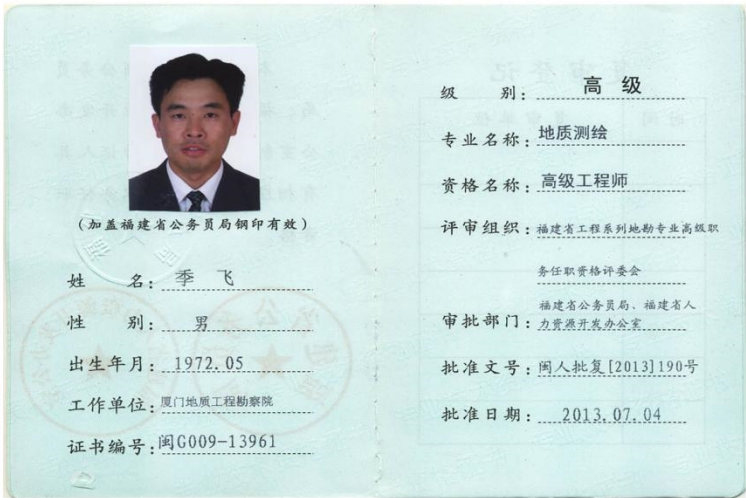 (加盖福建省公务员局钢印有效)
姓 名: 季 飞
性 别: 男
出生年月: 1972.05
工作单位: 厦门地质工程勘察院
证书编号: 闽G009-13961
级 别: 高 级
专业名称: 地质测绘
资格名称: 高级工程师
评审组织: 福建省工程系列地勘专业高级职
务任职资格评委会
审批部门: 福建省公务员局、福建省人
力资源开发办公室
批准文号: 闽人批复[2013]190号
批准日期: 2013.07.04